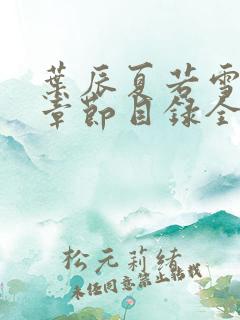 葉辰夏若雪
章節目錄全
松元莉緒
未经同意禁止转载